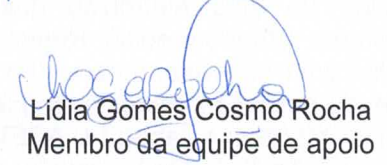 Lidia Gomes Cosmo Rocha
Membro da equipe de apoio